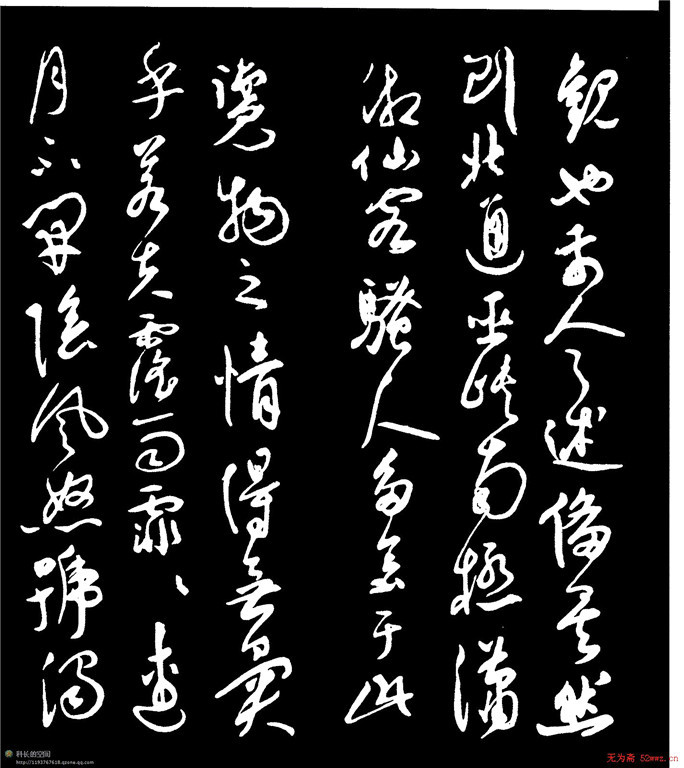 觀也前人之述備矣然
則北通巫峽南極瀟
湘仙客騷人多會于此
覽物之情得無異
乎若夫霪雨霏〻連
月不開陰風怒號濁
科长的空间
http://1193767618.qzone.qq.com
无为斋 52wwz.cn